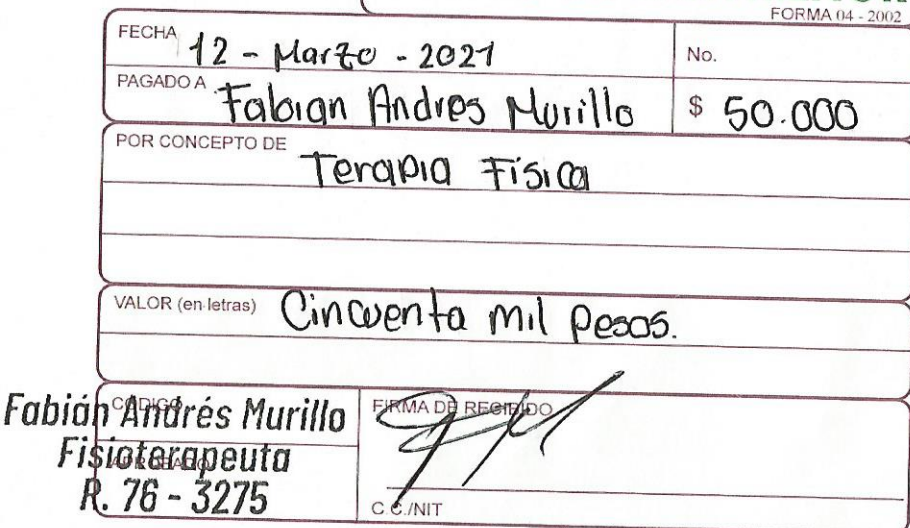 FORMA 04 - 2002
FECHA 12 - Marzo - 2021
No.
PAGADO A Fabian Andres Murillo
$ 50.000
POR CONCEPTO DE Terapia Física
VALOR (en letras) Cincuenta mil Pesos.
CODIGO
Fabián Andrés Murillo
FIRMA DE RECIBIDO
APROBADO
Fisioterapeuta
R. 76 - 3275
C.C./NIT